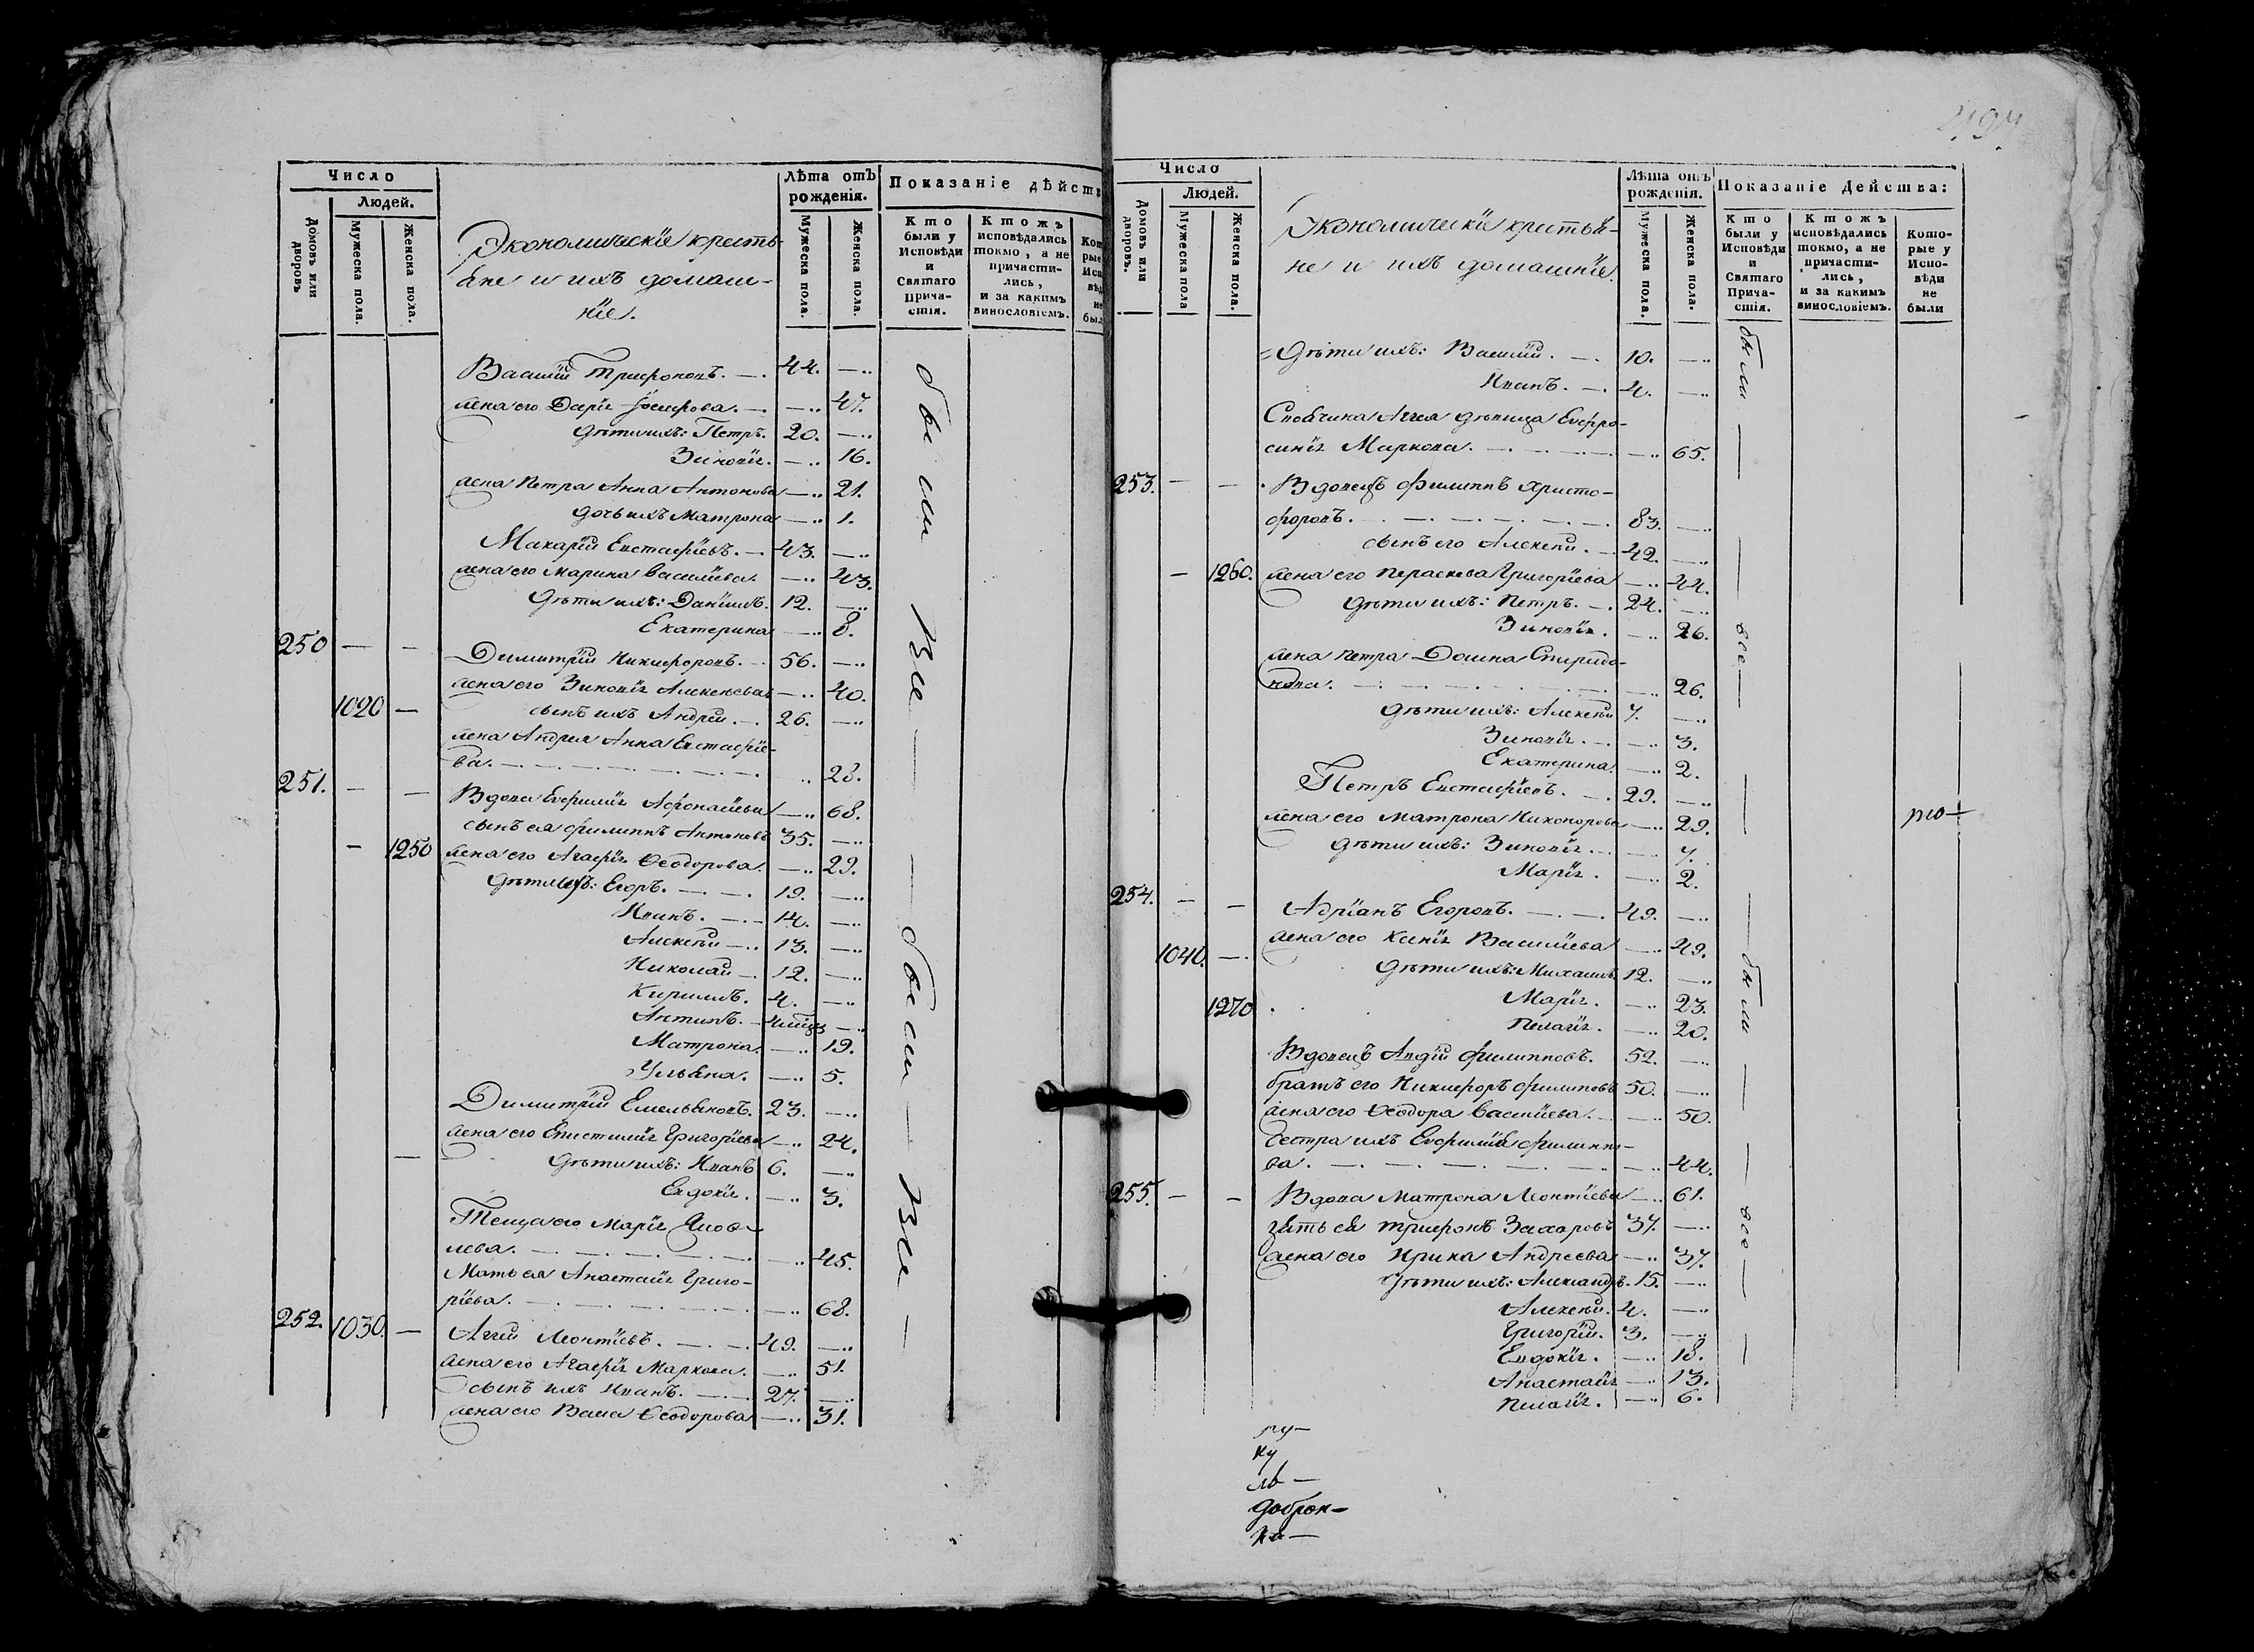 Число
Людей.
Домовъ или дворовъ
Мужеска пола.
Женска пола.
Экономическіе кресть-
яне и ихъ домаш-
ніе.
Лѣта отъ
рожденія.
Мужеска пола.
Женска пола.
Показаніе дѣйств
Кто
были у
Исповѣди
и
Святаго
Прича-
стія.
Ктожъ
исповѣдались
токмо, а не
причасти-
лись,
и за какимъ
винословіемъ.
Василій Трифоновъ. — 44. —
жена его Дарія Іосифова. — — 47.
дѣти ихъ: Петръ. 20. —
Зиновія. — 16.
жена Петра Анна Антонова — 21.
дочь ихъ Матрона — 1.
Макарій Евстафіевъ. — 43. —
жена его Марина Васильева. — 43.
дѣти ихъ: Даніилъ. 12. —
Екатерина — 8.
250 — — Димитрій Никифоровъ. — 56. —
жена его Зиновія Алексѣева — 40.
1020 — сынъ ихъ Андрей. — 26. —
жена Андрея Анна Евстафіе-
ва. — 28.
251. — — Вдова Евфимія Афонасіева — 68.
сынъ ея Филиппъ Антоновъ 35. —
— 1250 жена его Агафія Ѳеодорова. — 29.
дѣти ихъ: Егоръ. — 19. —
Иванъ. — 14. —
Алексѣй — 13. —
Николай — 12. —
Кирилъ. 4. —
Антипъ. —
Матрона. — 19.
Ульяна. — 5.
Димитрій Емельяновъ. 23. —
жена его Епистимія Григоріева — 24.
— дѣти ихъ: Иванъ 6. —
Евдокія. — 3.
Теща его Марія Яков-
лева. — 45.
Мать ея Анастасія Григо-
ріева. — 68.
252. 1030. — Аггей Леонтіевъ. — 49. —
жена его Агафія Маркова. — 51.
сынъ ихъ Иванъ. — 27. —
жена его Васса Ѳеодорова — 31.
были
Все
были
Все
Число
Людей.
Домовъ или дворовъ.
Мужеска пола
Женска пола.
Экономическіе крестья-
не и ихъ домашніе.
Лѣта отъ
рожденія.
Мужеска пола.
Женска пола.
Показаніе Действа:
Кто
были у
Исповѣди
и
Святаго
Прича-
стія.
Ктожъ
исповѣдались
токмо, а не
причасти-
лись,
и за какимъ
винословіемъ.
Кото-
рые у
Испо-
вѣди
не
были
дѣти ихъ: Василій. — 10. —
Иванъ. — 4. —
Аггея дѣвица Евфро-
синія Маркова. — 65.
253. — — Вдовецъ Филиппъ Христо-
форовъ. — 83. —
сынъ его Алексѣй. — 42. —
— 1260. жена его Параскева Григоріева — 44.
дѣти ихъ: Петръ. — 24. —
Зиновія. — 26.
жена Петра Домна Спиридо-
нова. — 26.
дѣти ихъ: Алексѣй 7. —
Зиновія. — 3.
Екатерина. — 2.
Петръ Евстафіевъ. — 29. —
жена его Матрона Никонорова — 29.
дѣти ихъ: Зиновія. — 7.
Марія. — 2.
254. — — Адріанъ Егоровъ. — 49. —
жена его Ксенія Васильева — 49.
1040. — дѣти ихъ: Михаилъ 12. —
1270 Марія. — 23.
Пелагія. — 20.
Вдовецъ Авдій Филипповъ. 52. —
братъ его Никифоръ Филиповъ 50. —
жена его Ѳеодора Васильева. — 50.
Сестра ихъ Евфимія Филиппо-
ва. — 44.
255. — — Вдова Матрона Леонтіева — 61.
зять ея Трифонъ Захаровъ 37. —
жена его Ирина Андреева — 37.
дѣти ихъ: Александръ. 15. —
Алексѣй. 4. —
Григорій. 3. —
Евдокія. — 18.
Анастасія — 13.
Пелагія. — 6.
были
все
были
все
ру-
ку